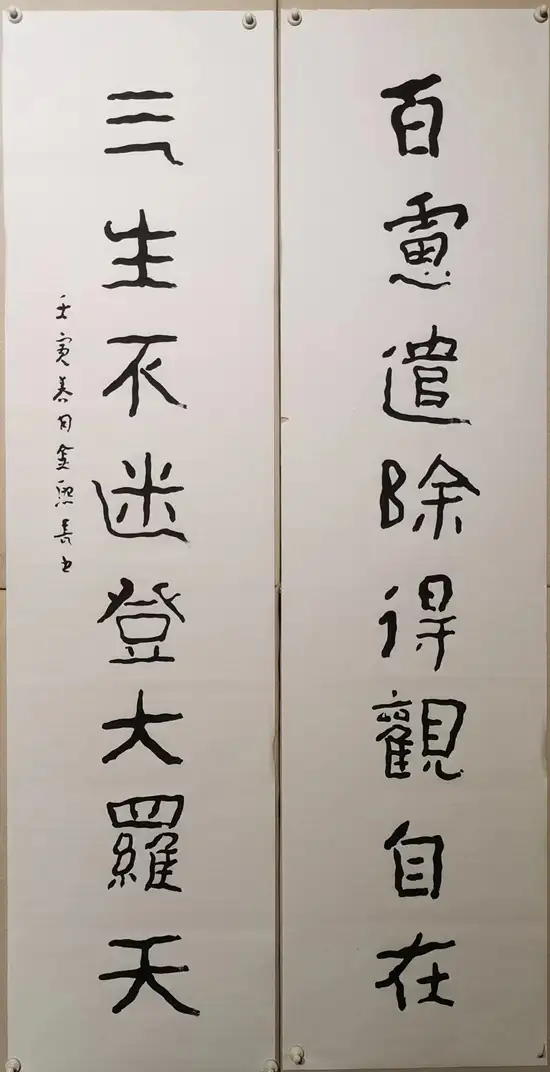 百慮遣除得觀自在
三生不迷登大羅天
壬寅春月金熙長书